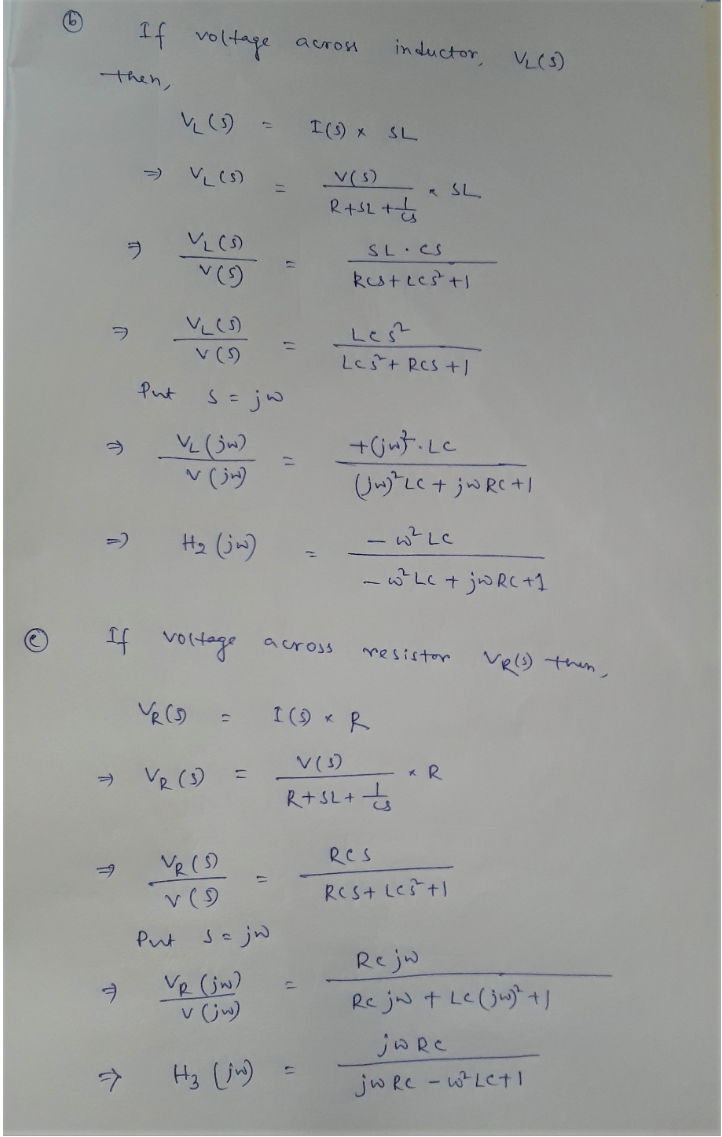 (b) If voltage across inductor, VL(s)
then,
VL(s) = I(s) × sL
⇒ VL(s) = V(s) / (R+sL+1/cs) × sL
⇒ VL(s)/V(s) = sL·cs / (Rcs+Lcs²+1)
⇒ VL(s)/V(s) = Lcs² / (Lcs²+Rcs+1)
Put s = jω
⇒ VL(jω)/V(jω) = +(jω)²·LC / ((jω)²LC + jωRC+1)
⇒ H2(jω) = -ω²LC / (-ω²LC + jωRC+1)
(c) If voltage across resistor VR(s) then,
VR(s) = I(s) × R
⇒ VR(s) = V(s) / (R+sL+1/cs) × R
⇒ VR(s)/V(s) = Rcs / (Rcs+Lcs²+1)
Put s = jω
⇒ VR(jω)/V(jω) = Rcjω / (Rcjω + Lc(jω)²+1)
⇒ H3(jω) = jωRC / (jωRC - ω²LC+1)